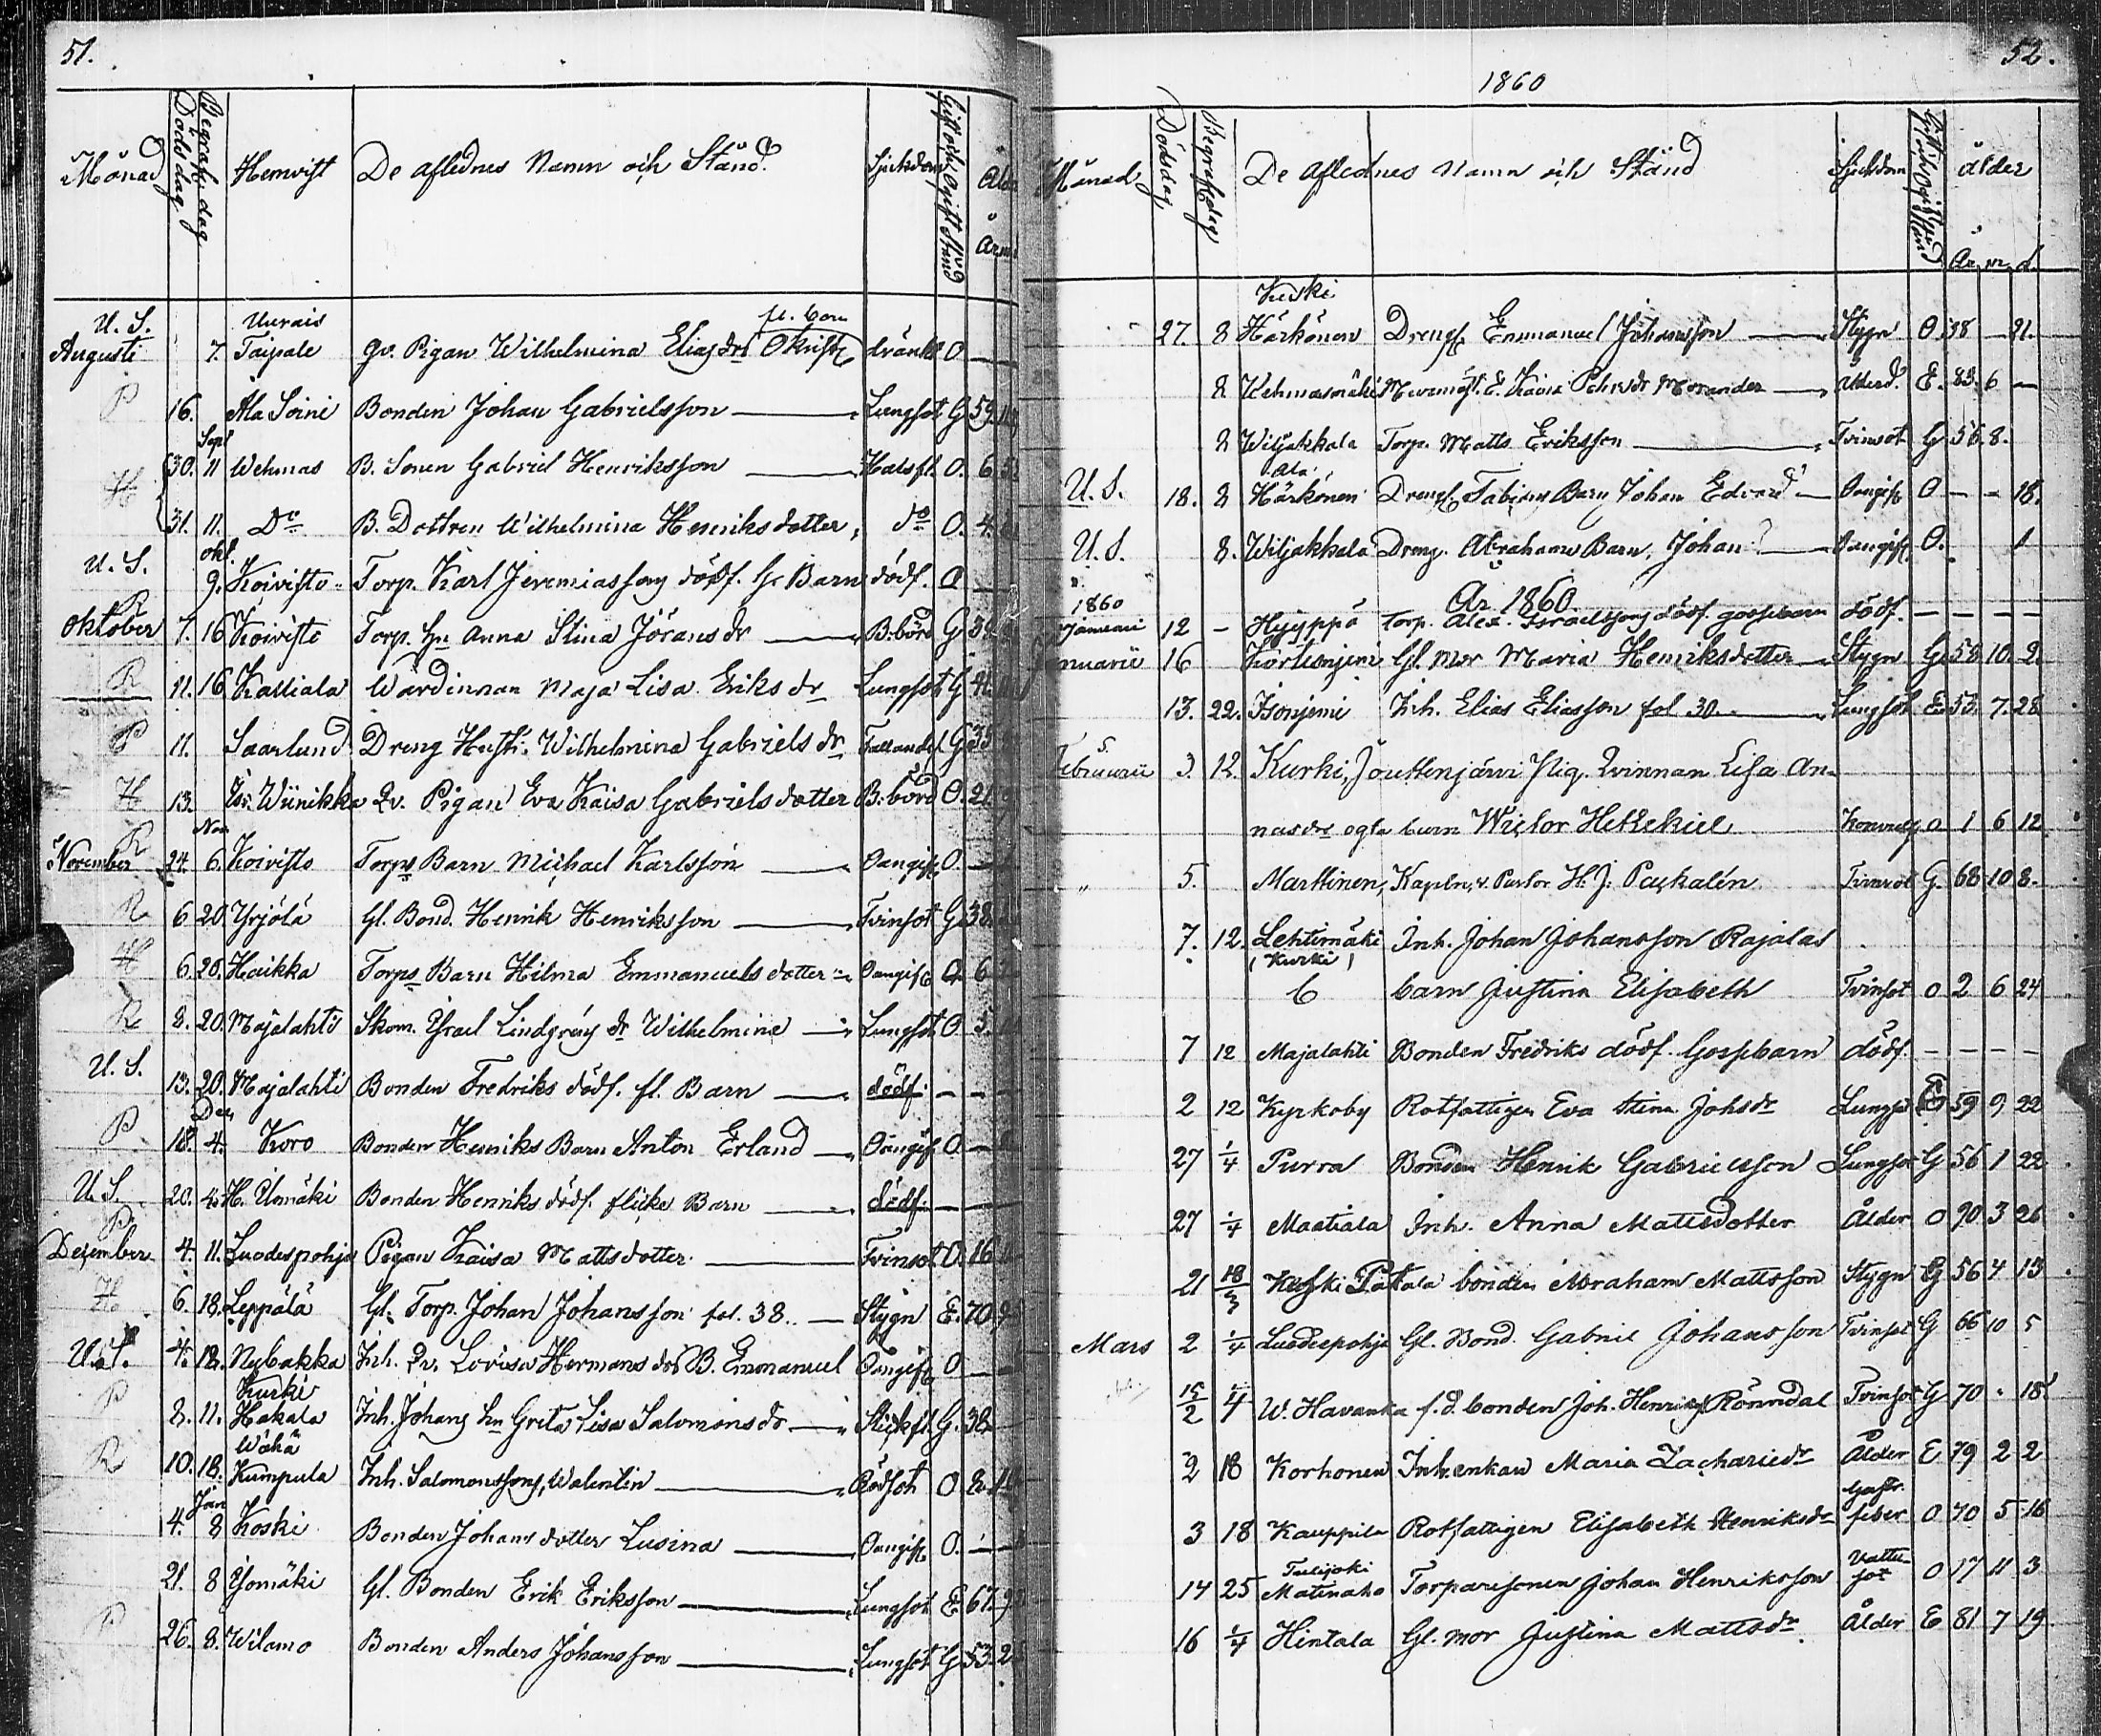 51.
Månad Döds dag Begrafn. dag Hemvist De aflednes Namn och Stånd. Sjukdom Gift och Ogift Stånd Ålder
År m
U. S. Uurais fl. barn
Augusti 7. Taipale Qv. Pigan Wilhelmina Elias drs Okrist dränkt O —
P 16. Ala Soini Bonden Johan Gabrielsson — Lungsot G 59
Sept
H 30. 11 Wehmas B. Sonen Gabriel Henriksson — Halsfl. O. 6
31. 11. Do B. Dottren Wilhelmina Henriksdotter, do O. 4.
U. S. okt.
9. Koivisto Torp. Karl Jeremiassons dödf. Barn dödf. —
R
Oktober 7. 16 Koivisto Torp. Hu Anna Stina Jörans dr — B. börd G
R 11. 16 Kattiala Wärdinnan Maja Lisa Eriks dr Lungsot G
P 11. Saarlund Dreng Hustr. Wilhelmina Gabriels dr Fallandes. G 35
H 13. Wiinikka Qv. Pigan Eva Kaisa Gabrielsdotter B. börd O. 21
R Nov
November 24. 6. Koivisto Torps Barn Michael Karlsson — Oangif. O. —
R 6 20. Yrjölä Gl. Bond. Henrik Henriksson — Tvinsot G 38
H 6. 20. Haikka Torps Barn Hilma Emmanuelsdotter Oangif. 6
R 8. 20. Majalahti Skom. Israel Lindgréns dr Wilhelmina — Lungsot O. 5
U. S. 13. 20. Majalahti Bonden Fredriks dödf. fl. Barn — dödf. — —
Dec
P. 18. 4. Koro Bonden Henriks Barn Anton Erland — Oangif. O. —
U. S. 20. 4. H. Ulmäki Bonden Henriks dödf. flicke Barn — dödf. — —
P.
December 4. 11. Luodespohja Pigan Kaisa Mattsdotter. — Tvinsot O. 16
H 6. 18. Leppälä Gl. Torp. Johan Johansson fol. 38. — Stygn E. 70
U. S. 4. 12. Nybakka Inh. Qv. Lovisa Hermans drs B. Emmanuel Oangif. O —
Kurki
P 8. 11. Hakala Inh. Johans hu Greta Lisa Salomons dr — Stickfl. G. 38
Wähä
R 10. 18. Kumpula Inh. Salomonssons, Walentin — Rödsot O 2
Jan
4. 8 Koski Bonden Johans dotter Lusina — Oangif. O. —
21. 8 Ylomäki Gl. Bonden Erik Eriksson — Lungsot E. 67
P 26. 8. Wilamo Bonden Anders Johansson — Lungsot G 53
52.
1860
Månad Dödsdag Begrafn. dag De aflednes Namn och Stånd Sjukdom Gift och Ogift Stånd ålder
År. m. d.
Kurki
27. 8 Härkönen Drengs. Emmanuel Johansson — Stygn O. 38 — 21.
8 Wehmasmäki E. Kaisa Pehrs dr Morander — ålderd. E. 83. 6 —
8 Wiljakkala Torp. Matts Eriksson — Tvinsot G 56. 8.
Ala
U. S. 18. 8 Härkönen Drengs. Fabians Barn Johan Edvard — Oangif. O — — 18.
U. S. 8. Wiljakkala Dreng. Abrahams Barn, Johan — Oangif. O. 1
År 1860.
1860
Januari 12 — Hyyppä Torp. Alex. Israelssons dödf. gossebarn dödf. — — — —
Januarii 16 Kortesnjemi Gl. Mor Maria Henriksdotter — Stygn G. 58 10. 2.
13. 22. Isonjemi Inh. Elias Eliasson fol 30. — Lungsot E. 53. 7. 28
Februarii 3. 12. Kurki, Jouttenjärvi Pig. Qvinnan Lisa An-
nasdrs ogta barn Wictor Hetzekiel O 1 6 12
" 5. Marttinen, Kapeln, v. Pastor H. J. Packalén Tvinsot G. 68 10 8.
7. 12. Lehtimäki Inh. Johan Johansson Rajalas
(Kurki)
barn Justina Elisabeth Tvinsot O 2 6 24
7 12 Majalahti Bonden Fredriks dödf. Gossebarn dödf. — — — —
2 12 Kyrkoby Rotfattigen Eva Stina Johsdr Lungsot 59 9 22
27 1/4 Purra Bonden Henrik Gabrielsson Lungsot G 56 1 22
27 1/4 Maatiala Inh. Anna Mattsdotter Ålder O 90 3 26
21 18/3 Keski Patala bonden Abraham Mattsson Stygn G 56 4 13
Mars 2 1/4 Luodespohja Gl. Bond. Gabriel Johansson Tvinsot G 66 10 5
15/2 4 W. Havanka f. d. bonden Joh. Henriks. Rönndal Tvinsot G 70 . 18
2 18 Korhonen Inh. enkan Maria Zachariedr Ålder E 79 2 2
Gastr.
3 18 Kauppila Rotfattigen Elisabeth Henriksdr feber O 70 5 16
Tulijoki Vattu-
14 25 Matinaho Torparesonen Johan Henriksson sot O 17 11 3
16 1/4 Hintala Gl. mor Justina Mattsdr. Ålder E 81 7 19